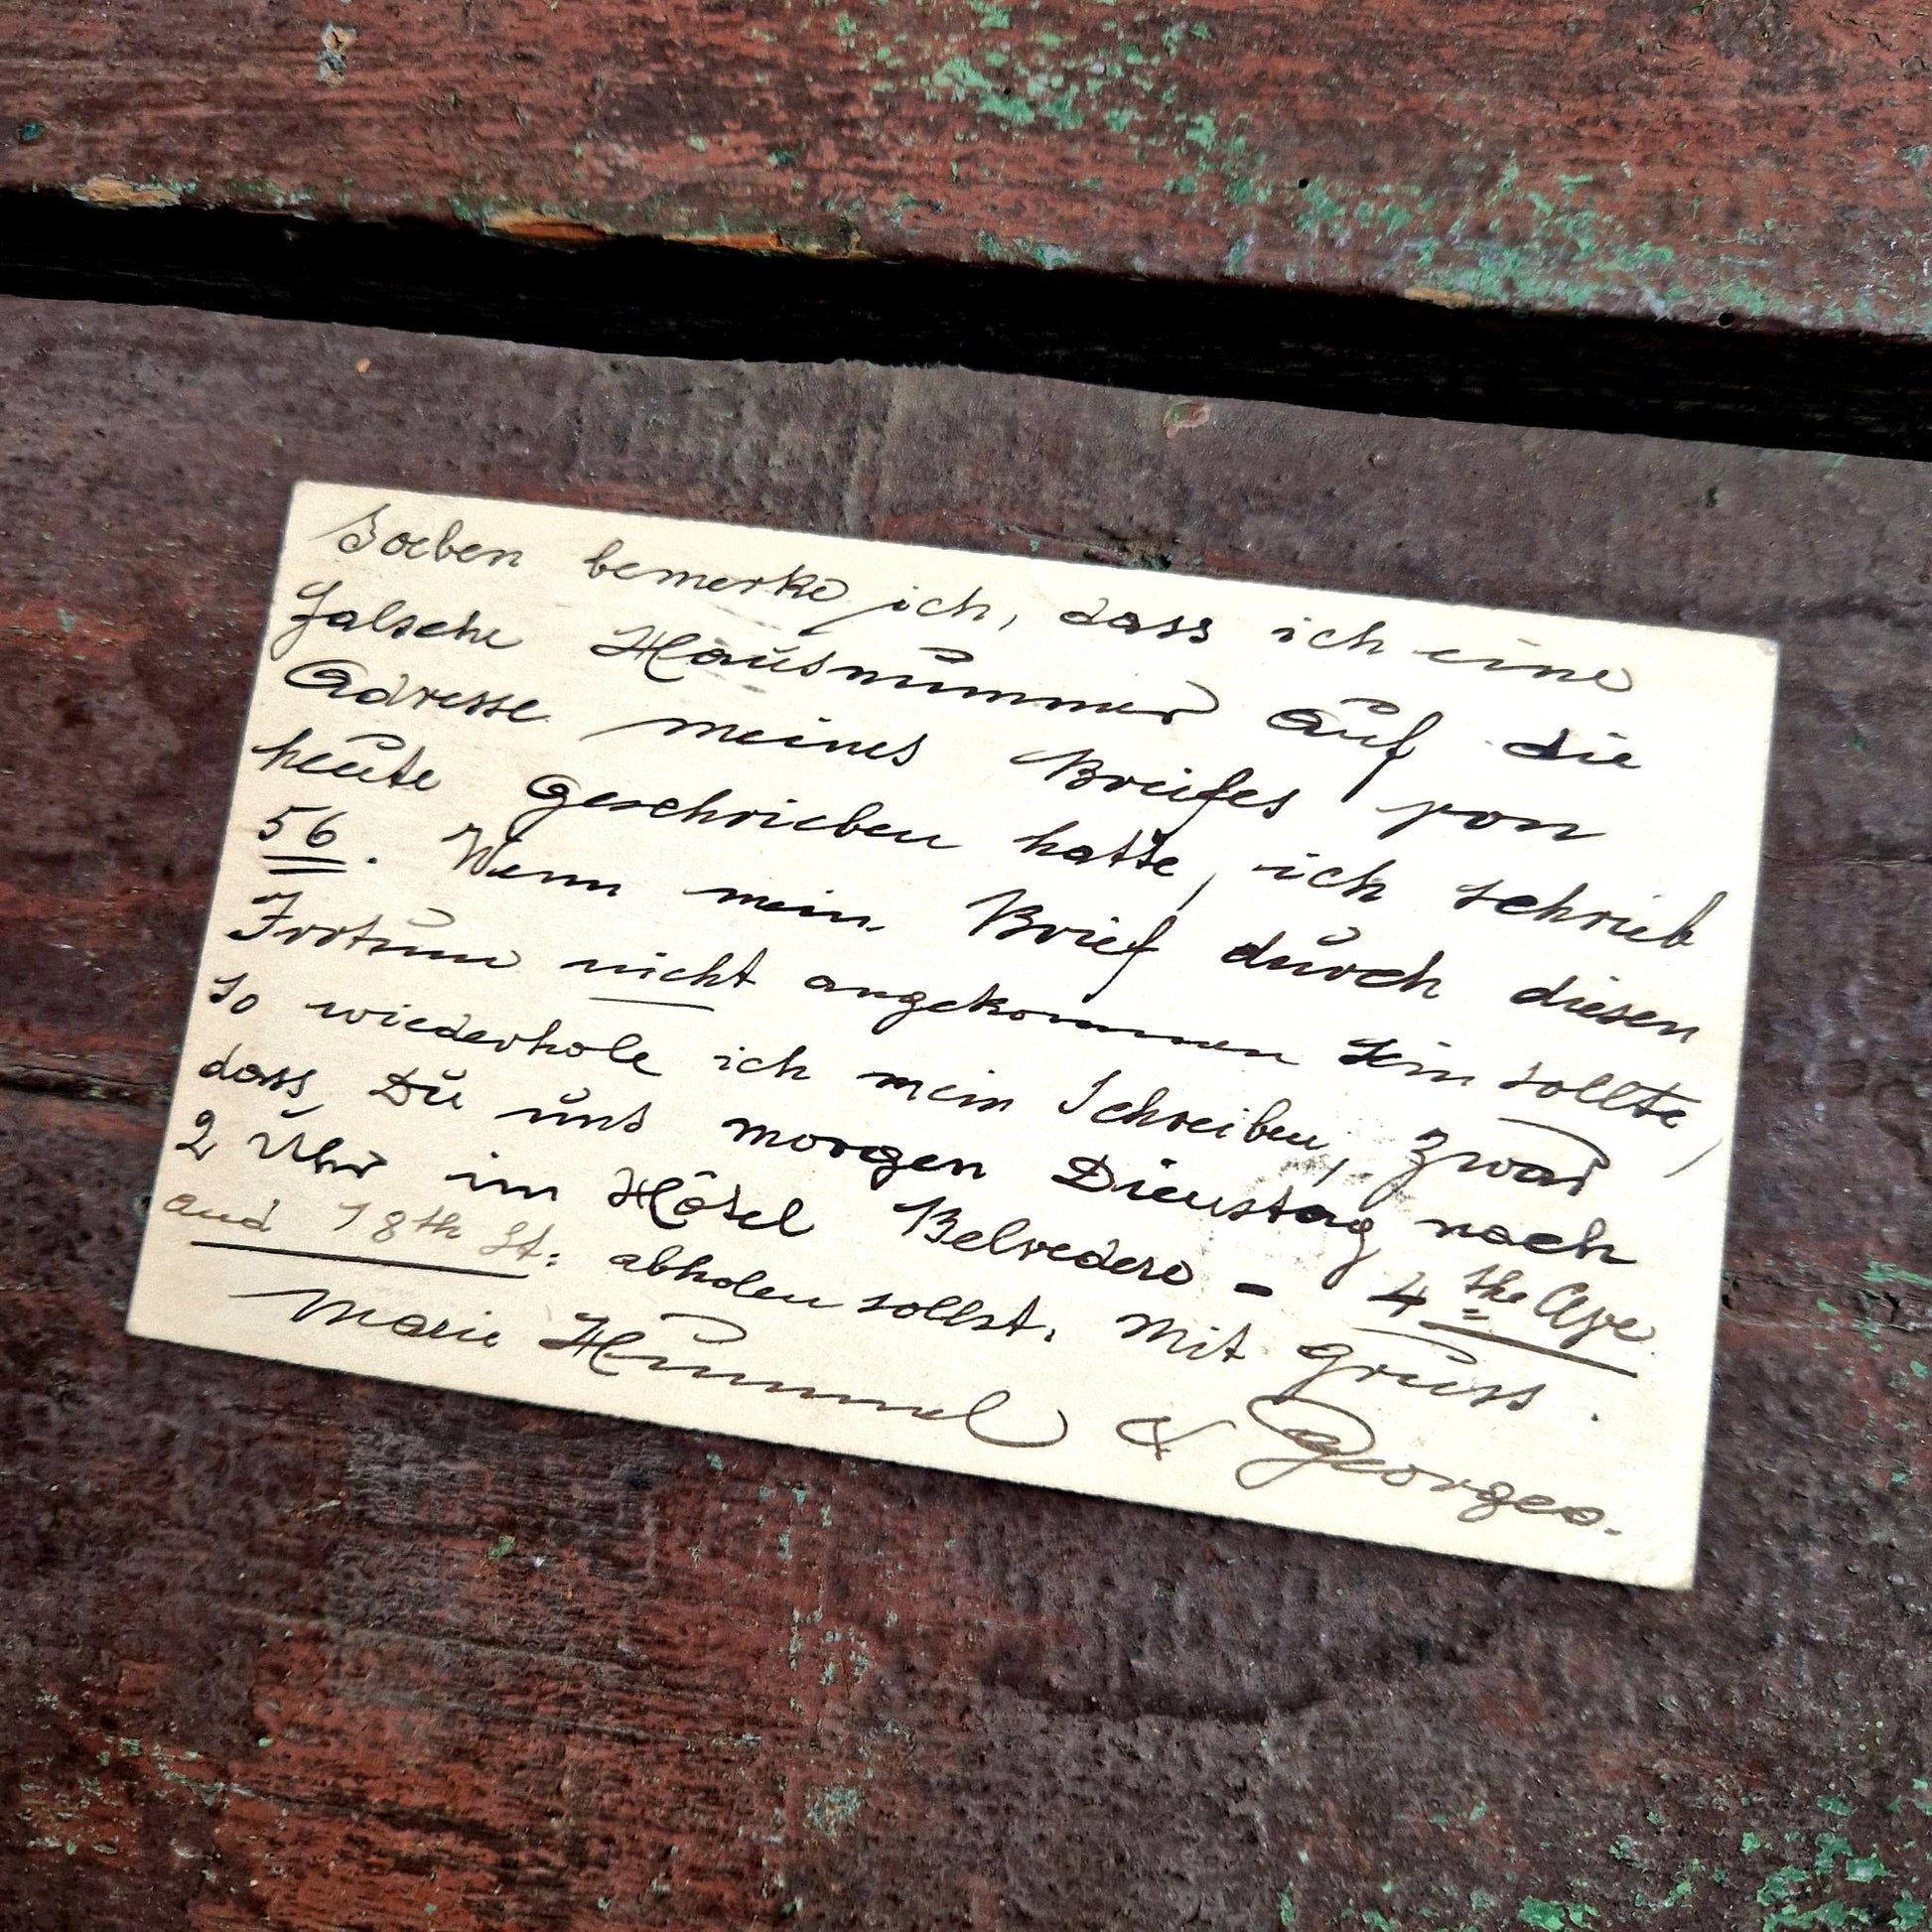 Soeben bemerke ich, dass ich eine
falsche Hausnummer auf die
Adresse meines Breifes von
heute geschrieben hatte, ich schrieb
56. Wenn mein Brief durch diesen
Irrtum nicht angekommen sein sollte,
so wiederhole ich mein Schreiben, zwar
dass Du uns morgen Dienstag nach
2 Uhr im Hôtel Belvedere - 4the Ave
and 18th St: abholen sollst. Mit Gruss.
Marie Hummel & Georges.